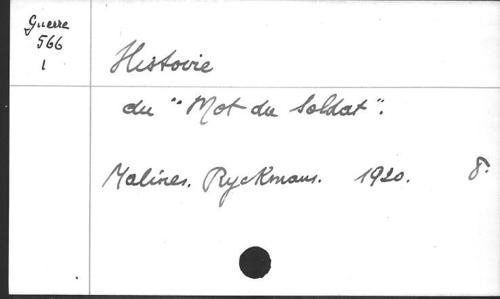 Guerre
566
1
Histoire
du "Mot du Soldat".
Malines. Ryckmans. 1920. 8.